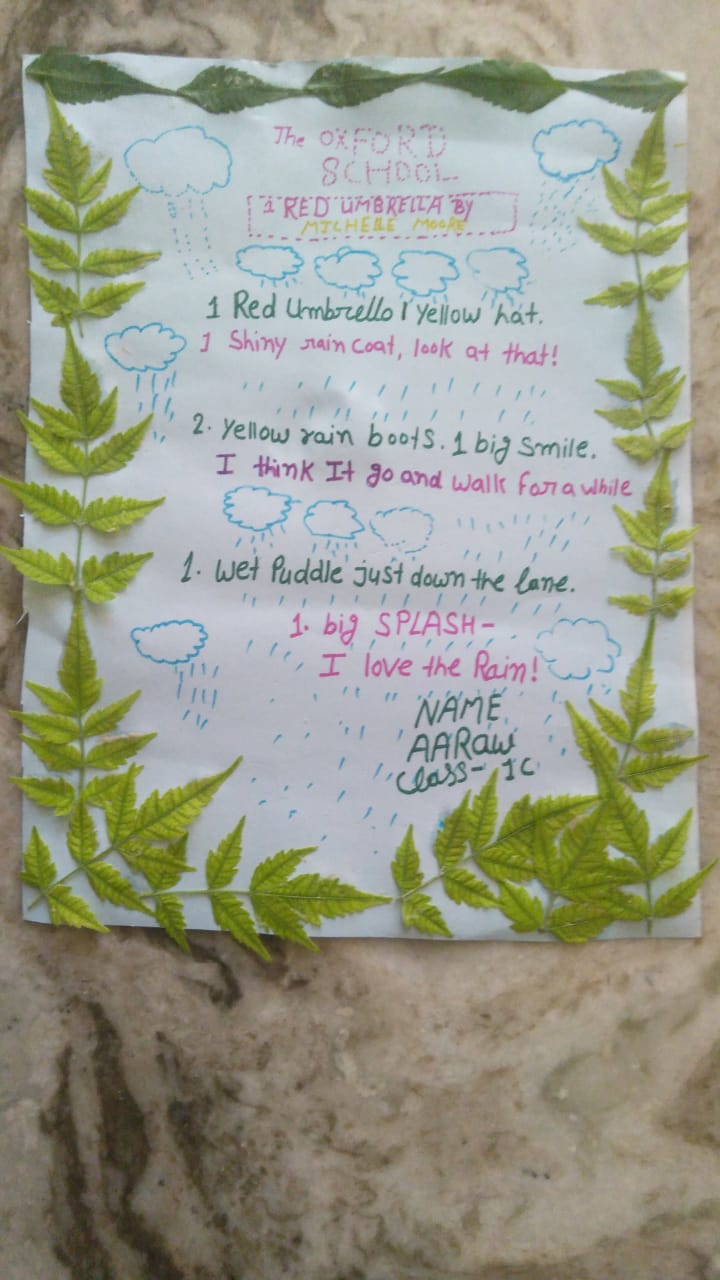 The OXFORD
SCHOOL
1 RED UMBRELLA BY
MICHELE MOORE
1 Red Umbrello 1 yellow hat.
1 Shiny rain coat, look at that!
2. yellow rain boots. 1 big smile.
I think It go and walk for a while
1. wet Puddle just down the lane.
1. big SPLASH-
I love the Rain!
NAME
AARaw
Class- 1C